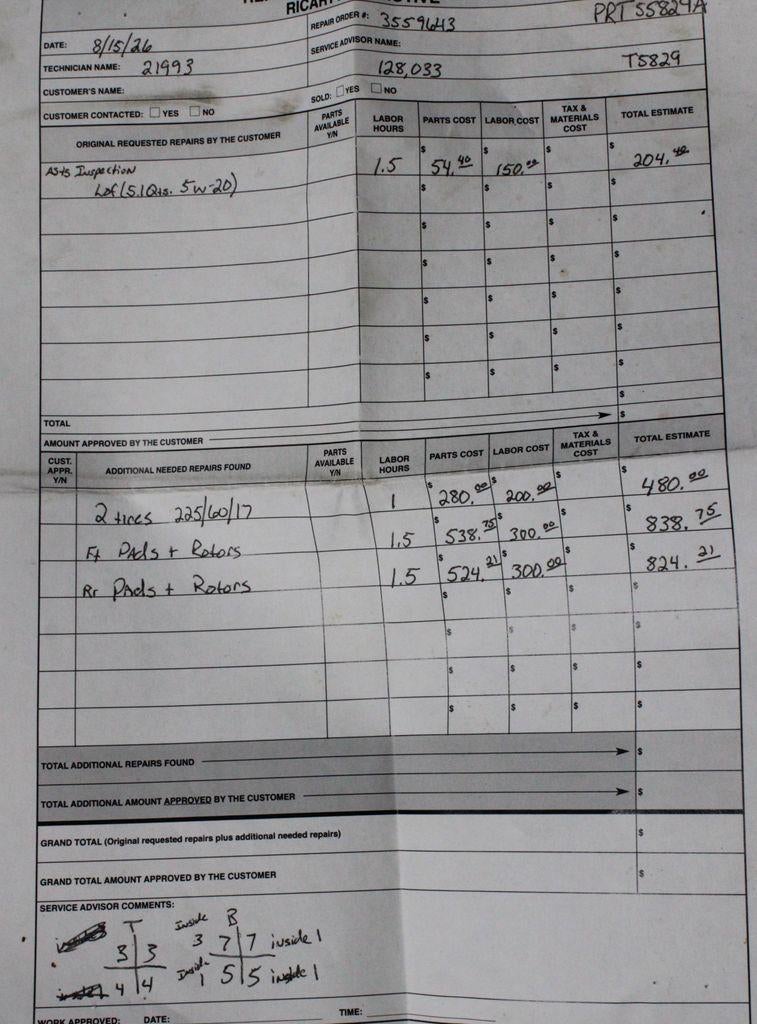 RICAR
REPAIR ORDER #: 3559643
PRT 55829A
DATE: 8/15/26
SERVICE ADVISOR NAME:
TECHNICIAN NAME: 21993
128,033
T5829
CUSTOMER'S NAME:
SOLD: YES NO
CUSTOMER CONTACTED: YES NO
ORIGINAL REQUESTED REPAIRS BY THE CUSTOMER PARTS AVAILABLE Y/N LABOR HOURS PARTS COST LABOR COST TAX & MATERIALS COST TOTAL ESTIMATE
Inspection 1.5 $ 54.40 $ 150.00 $ $ 204.40
Lof (5.1 Qts. 5w-20) $ $ $ $
$ $ $ $
$ $ $ $
$ $ $ $
$ $ $ $
$ $ $ $
$
TOTAL $
AMOUNT APPROVED BY THE CUSTOMER
CUST. APPR. Y/N ADDITIONAL NEEDED REPAIRS FOUND PARTS AVAILABLE Y/N LABOR HOURS PARTS COST LABOR COST TAX & MATERIALS COST TOTAL ESTIMATE
2 tires 225/60/17 1 $ 280.00 $ 200.00 $ $ 480.00
Ft Pads + Rotors 1.5 $ 538.75 $ 300.00 $ $ 838.75
Rr Pads + Rotors 1.5 $ 524.21 $ 300.00 $ $ 824.21
$ $ $ $
$ $ $ $
$ $ $ $
$ $ $ $
TOTAL ADDITIONAL REPAIRS FOUND $
TOTAL ADDITIONAL AMOUNT APPROVED BY THE CUSTOMER $
GRAND TOTAL (Original requested repairs plus additional needed repairs) $
GRAND TOTAL AMOUNT APPROVED BY THE CUSTOMER $
SERVICE ADVISOR COMMENTS:
T Inside B
3 3 3 7 7 inside 1
4 4 Inside 1 5 5 inside 1
WORK APPROVED: DATE: TIME: